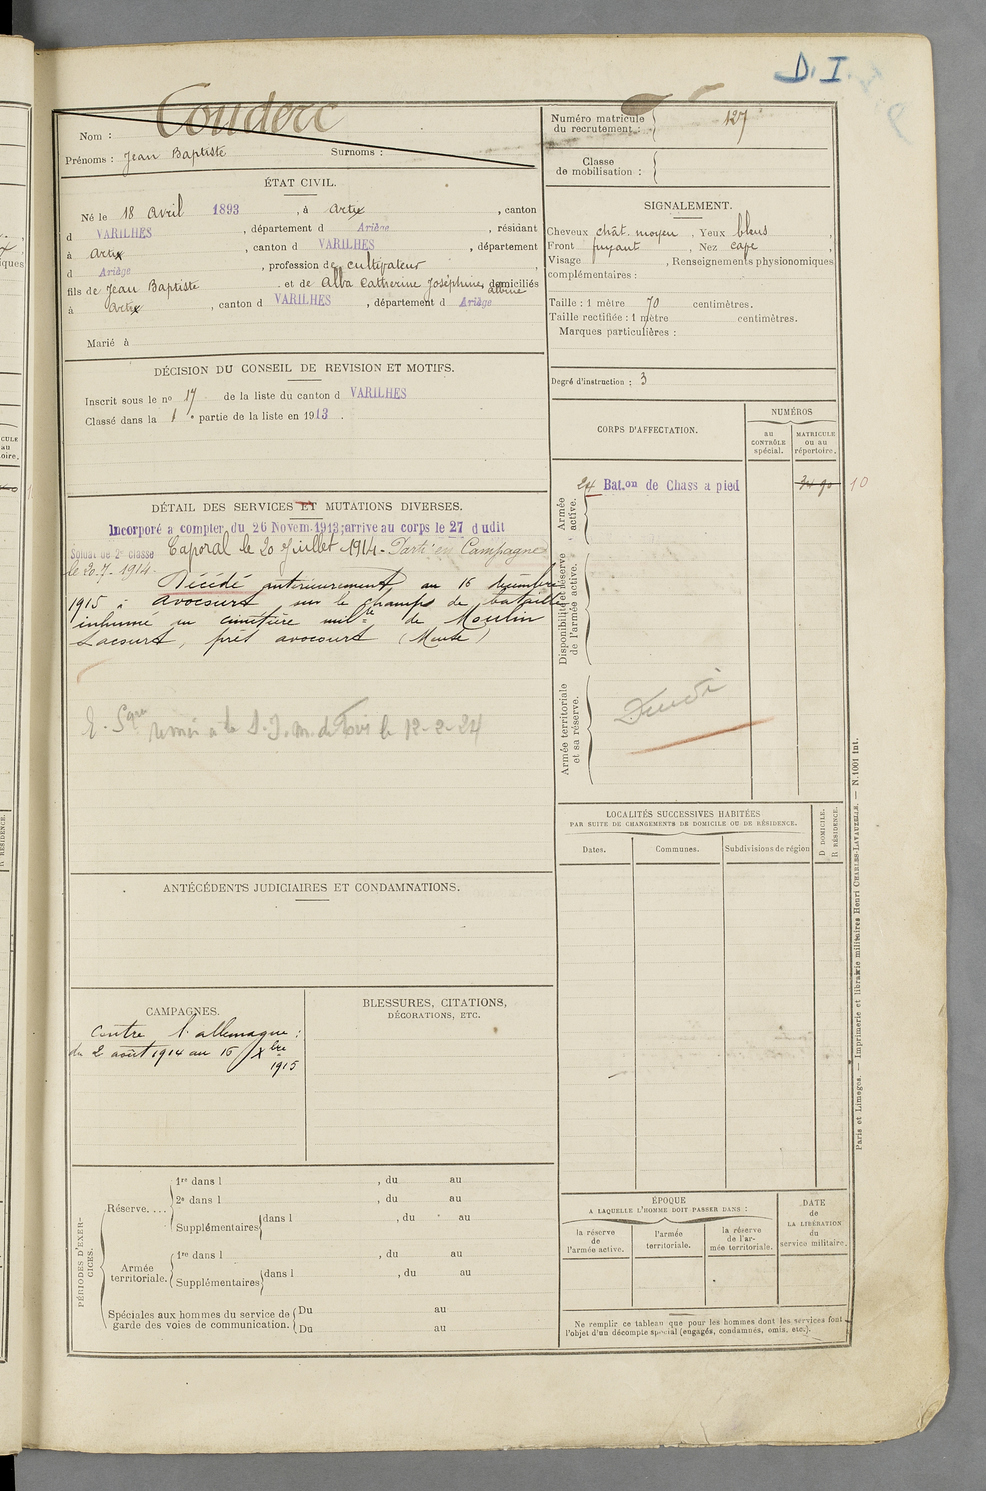 D. I.
Couderc
Nom :
Prénoms : Jean Baptiste Surnoms :
Numéro matricule
du recrutement : 127
Classe
de mobilisation :
ÉTAT CIVIL.
Né le 18 avril 1893, à Artix, canton
d VARILHES, département d Ariège, résidant
à Artix, canton d VARILHES, département
d Ariège, profession de cultivateur,
fils de Jean Baptiste et de Alba Catherine Joséphine, albine domiciliés
à Artix, canton d VARILHES, département d Ariège
Marié à
SIGNALEMENT.
Cheveux chât. moyen, Yeux bleus,
Front fuyant, Nez cave,
Visage , Renseignements physionomiques
complémentaires :
Taille : 1 mètre 70 centimètres.
Taille rectifiée : 1 mètre centimètres.
Marques particulières :
DÉCISION DU CONSEIL DE REVISION ET MOTIFS.
Inscrit sous le no 17 de la liste du canton d VARILHES
Classé dans la 1e partie de la liste en 1913.
Degré d'instruction : 3
CORPS D'AFFECTATION.
NUMÉROS
au
CONTRÔLE
spécial.
MATRICULE
ou au
répertoire.
Armée
active.
24 Bat.on de Chass à pied
10
Disponibilité et réserve
de l'armée active.
Armée territoriale
et sa réserve.
DÉTAIL DES SERVICES ET MUTATIONS DIVERSES.
Incorporé à compter du 26 Novem. 1913; arrivé au corps le 27 dudit
Soldat de 2e classe Caporal le 20 Juillet 1914 - Parti en Campagne
le 20.7-1914.
Décédé antérieurement au 16 décembre
1915 à Avocourt sur le champs de bataille
inhumé au cimetière milre de Moulin
Lacourt, près avocourt (Meuse)
le 12-2-24
LOCALITÉS SUCCESSIVES HABITÉES
PAR SUITE DE CHANGEMENTS DE DOMICILE OU DE RÉSIDENCE.
Dates.
Communes.
Subdivisions de région
D DOMICILE.
R RÉSIDENCE.
ANTÉCÉDENTS JUDICIAIRES ET CONDAMNATIONS.
CAMPAGNES.
Contre l'allemagne :
du 2 août 1914 au 16 Xbre
1915
BLESSURES, CITATIONS,
DÉCORATIONS, ETC.
PÉRIODES D'EXER-
CICES.
Réserve. ...
1re dans l , du au
2e dans l , du au
Supplémentaires dans l , du au
Armée
territoriale.
1re dans l , du au
Supplémentaires dans l , du au
Spéciales aux hommes du service de
garde des voies de communication.
Du au
Du au
ÉPOQUE
A LAQUELLE L'HOMME DOIT PASSER DANS :
la réserve
de
l'armée active.
l'armée
territoriale.
la réserve
de l'ar-
mée territoriale.
DATE
de
LA LIBÉRATION
du
service militaire.
Ne remplir ce tableau que pour les hommes dont les services font
l'objet d'un décompte spécial (engagés, condamnés, omis, etc.).
Paris et Limoges. — Imprimerie et librairie militaires Henri CHARLES-LAVAUZELLE. — N. 1001 int.